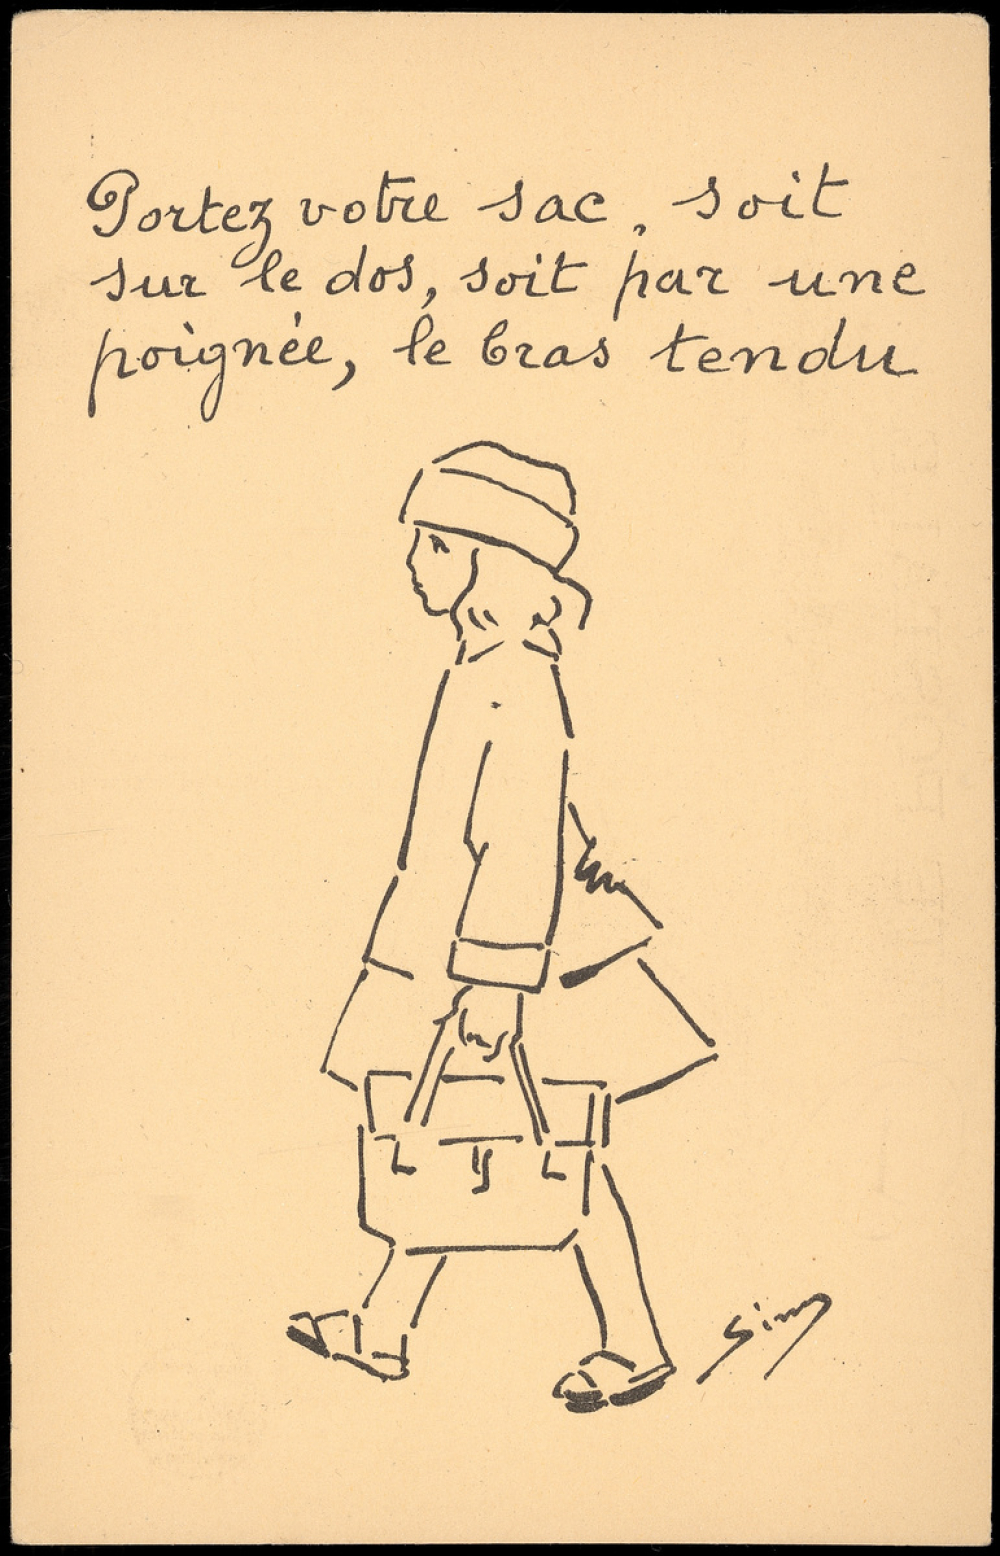 Portez votre sac, soit
sur le dos, soit par une
poignée, le bras tendu